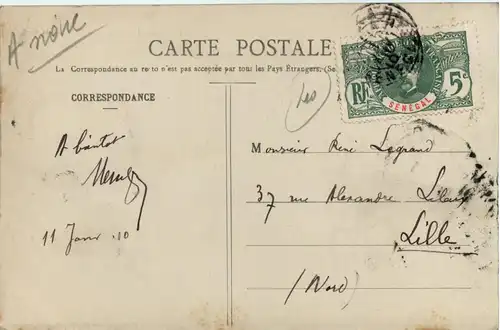 A noue
CARTE POSTALE
La Correspondance au recto n'est pas acceptée par tous les Pays Étrangers. (Se
RF
5c
SÉNÉGAL
CORRESPONDANCE
A bientot
11 Janv. 10
Monsieur René Legrand
37 rue Alexandre Leleux
Lille
(Nord)